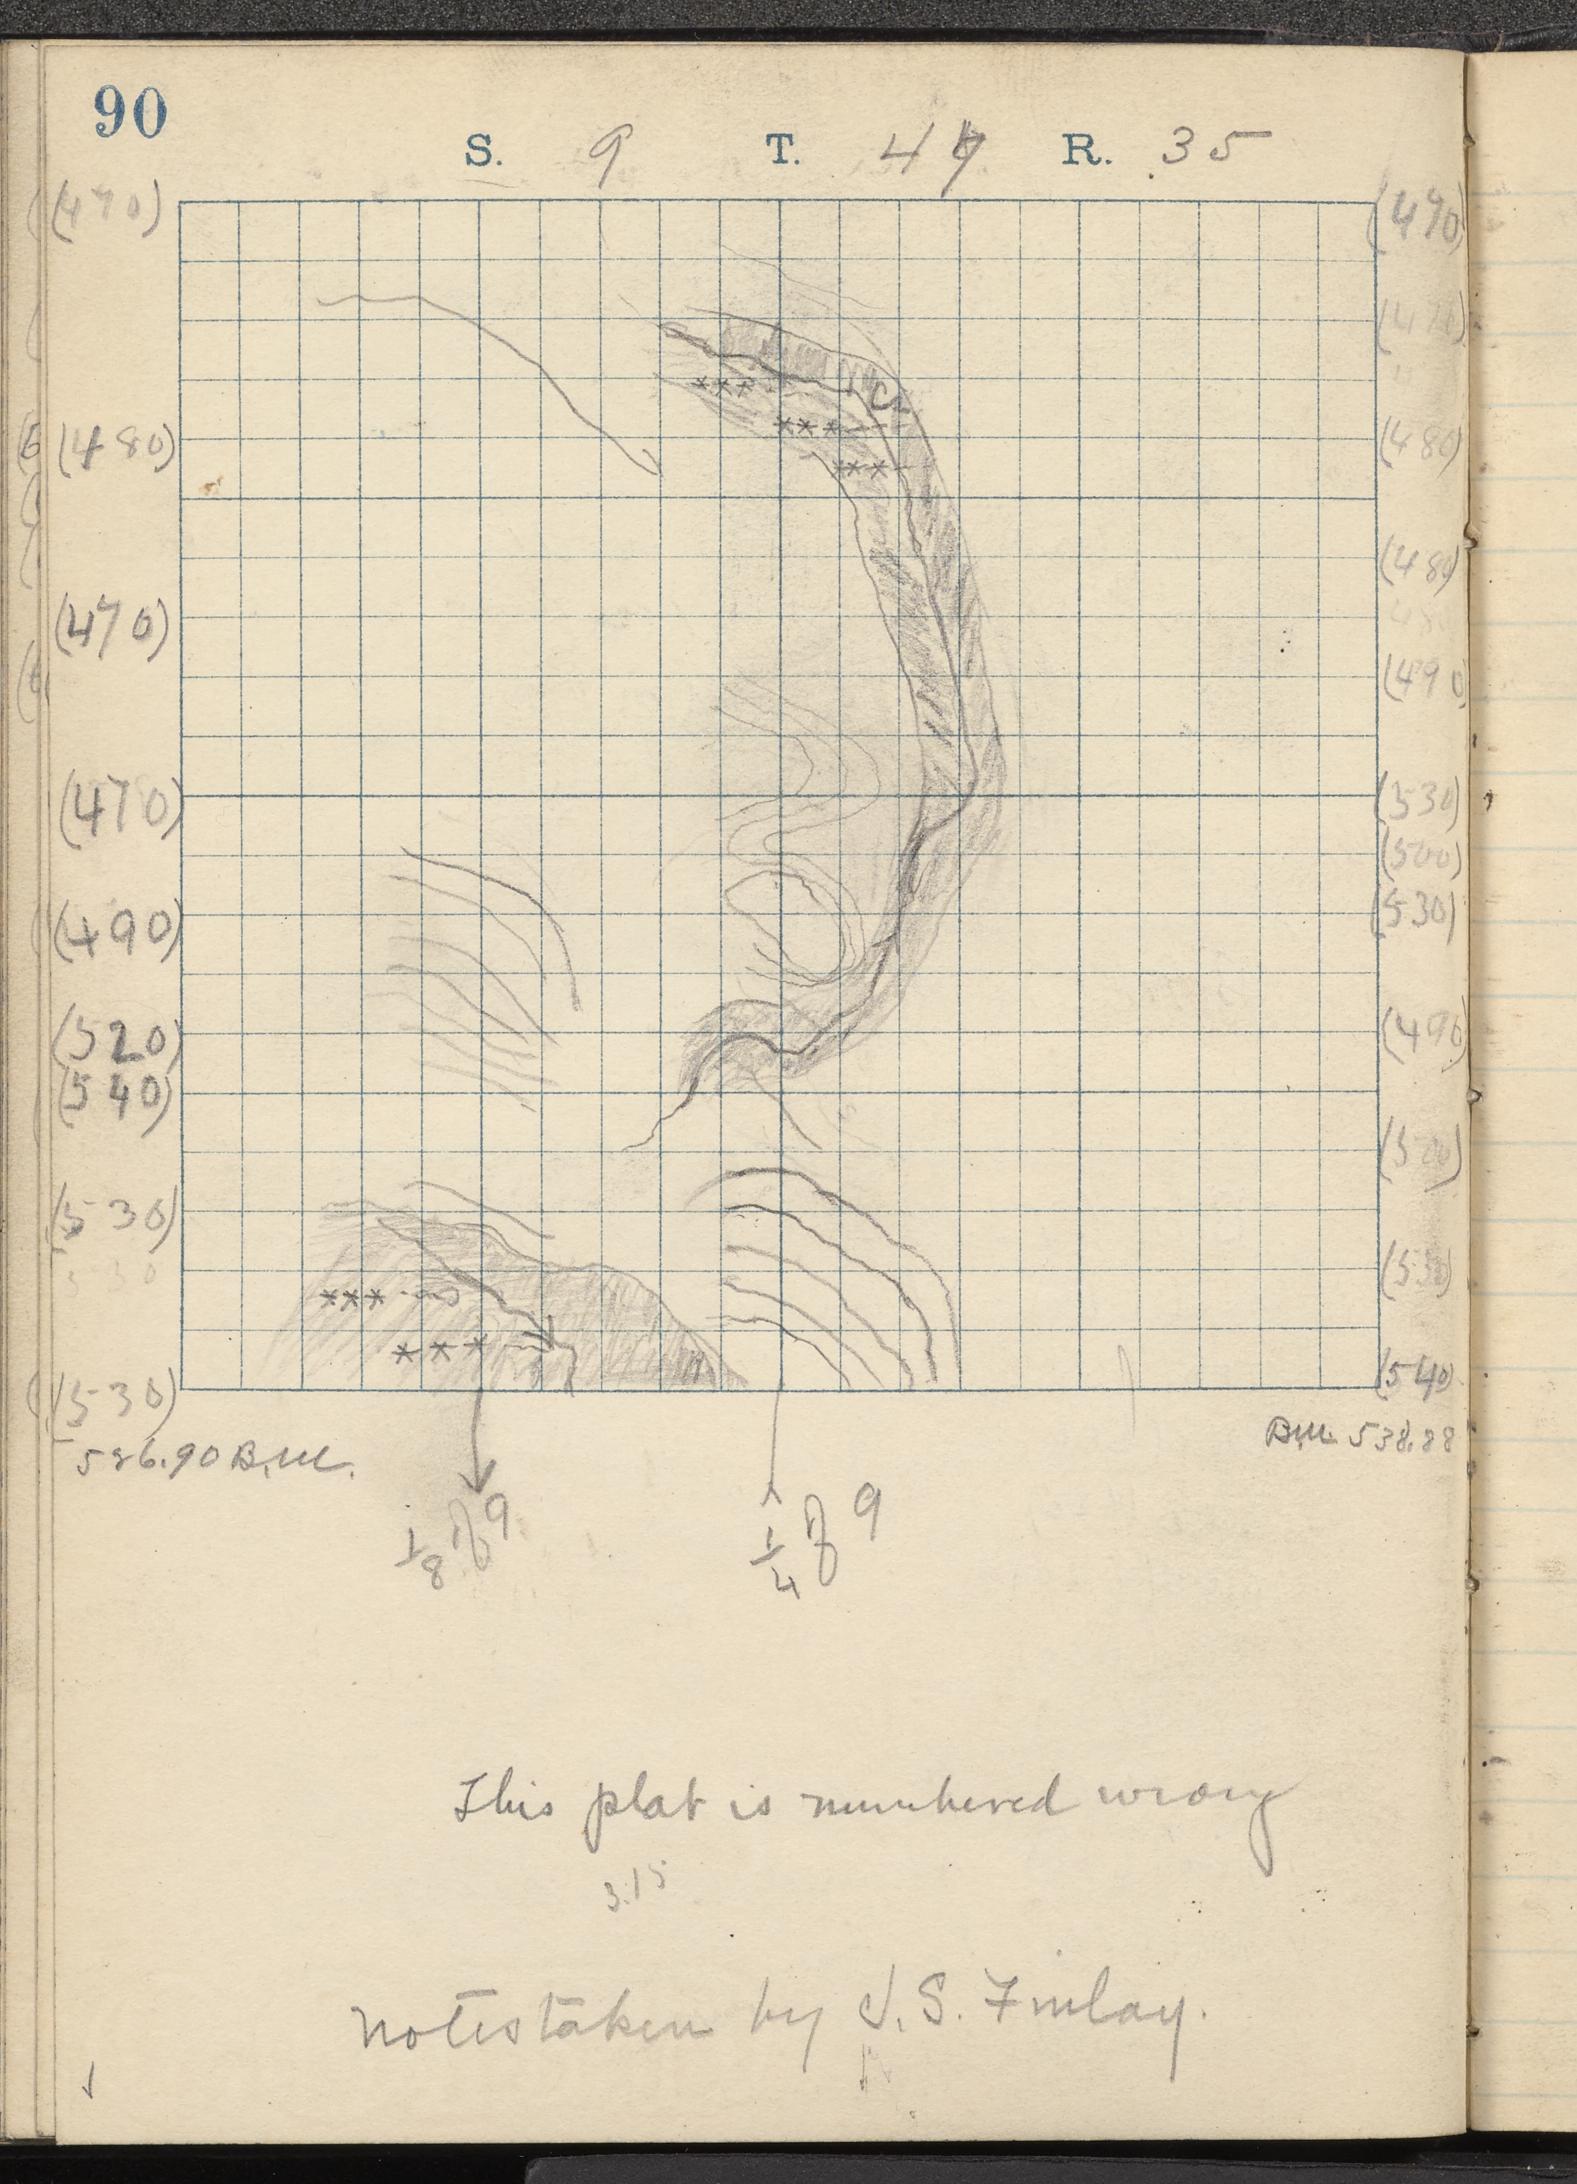 90
S. 9 T. 47 R. 35
(470) (490)
(470)
(480) (480)
(480)
(470)
(490)
(470) (530)
(500)
(490) (530)
(520) (490)
(540)
(530)
530
(530) (540)
526.90 B.M. B.M. 538.88
1/8 9
1/4 9
This plat is numbered wrong
3.15
Notes taken by J. S. Finlay.